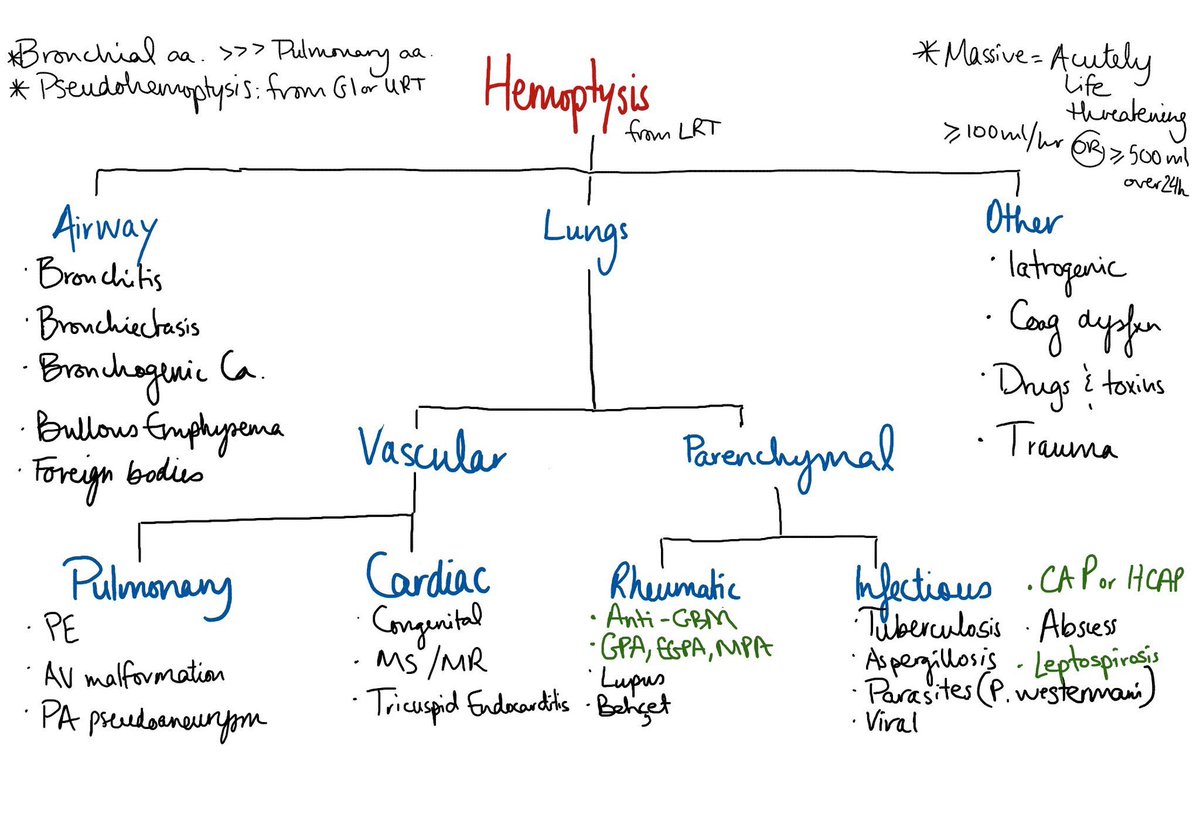 *Bronchial aa. >>> Pulmonary aa.
* Pseudohemoptysis: from GI or URT
Hemoptysis
from LRT
* Massive = Acutely
Life
threatening
≥100ml/hr OR ≥500ml
over 24h
Airway
· Bronchitis
· Bronchiectasis
· Bronchogenic Ca.
· Bullous Emphysema
· Foreign bodies
Lungs
Other
· Iatrogenic
· Coag dysfxn
· Drugs & toxins
· Trauma
Vascular
Parenchymal
Pulmonary
· PE
· AV malformation
· PA pseudoaneurysm
Cardiac
· Congenital
· MS/MR
· Tricuspid Endocarditis
Rheumatic
· Anti-GBM
· GPA, EGPA, MPA
· Lupus
· Behçet
Infectious
· Tuberculosis
· Aspergillosis
· Parasites (P. westermani)
· Viral
· CAP or HCAP
· Abscess
· Leptospirosis